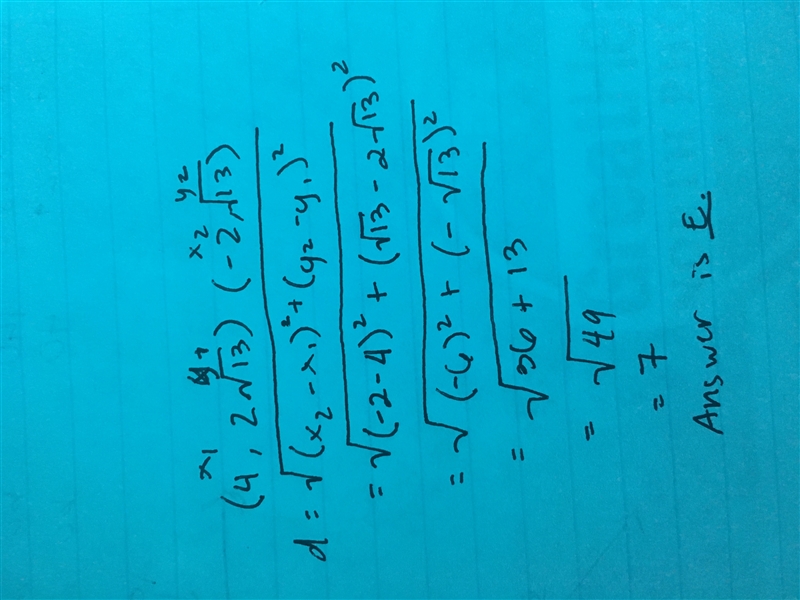 x1 y1 x2 y2
(4, 2√13) (-2√13)
d = √(x2 - x1)² + (y2 - y1)²
= √(-2-4)² + (√13 - 2√13)²
= √(-6)² + (-√13)²
= √36 + 13
= √49
= 7
Answer is E.